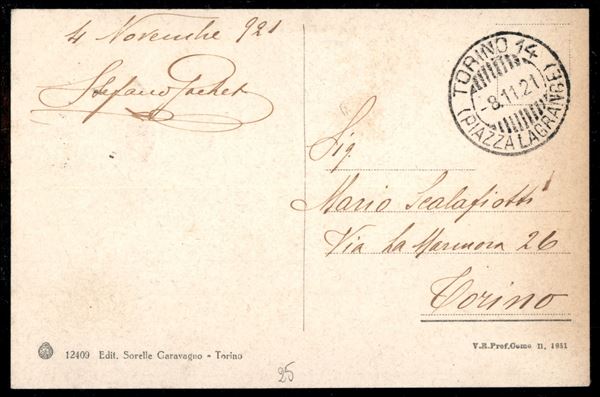 4 Novembre 921
Stefano Pochet
TORINO 14
-8.11.21
(PIAZZA LAGRANGE)
Sig.
Mario Scalafiotti
Via La Marmora 26
Torino
12409 Edit. Sorelle Caravagno - Torino
V.R.Prof.Como n. 1951
25